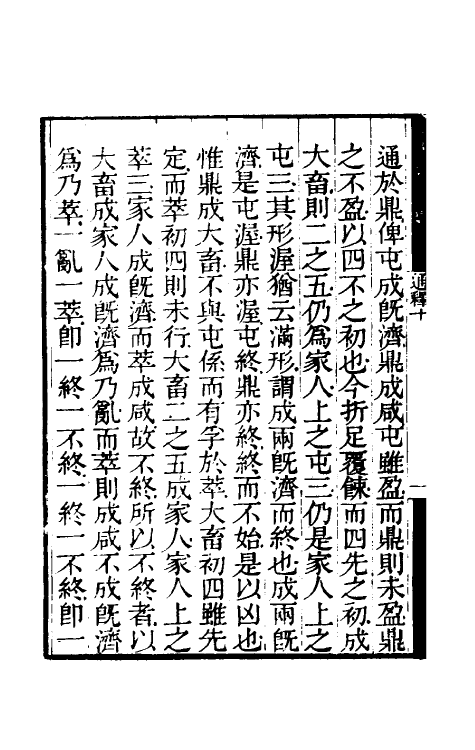 通於鼎俾屯成既濟鼎成咸屯雖盈而鼎則未盈鼎
之不盈以四不之初也今折足覆餗而四先之初成
大畜則二之五仍爲家人上之屯三仍是家人上之
屯三其形渥猶云滿形謂成兩旣濟而終也成兩旣
濟是屯渥鼎亦渥屯終鼎亦終終而不始是以凶也
惟鼎成大畜不與屯係而有孚於萃大畜初四雖先
定而萃初四則未行大畜二之五成家人家人上之
萃三家人成旣濟而萃成咸故不終所以不終者以
大畜成家人成旣濟爲乃亂而萃則成咸不成旣濟
爲乃萃一亂一萃卽一終一不終一終一不終卽一
通釋十